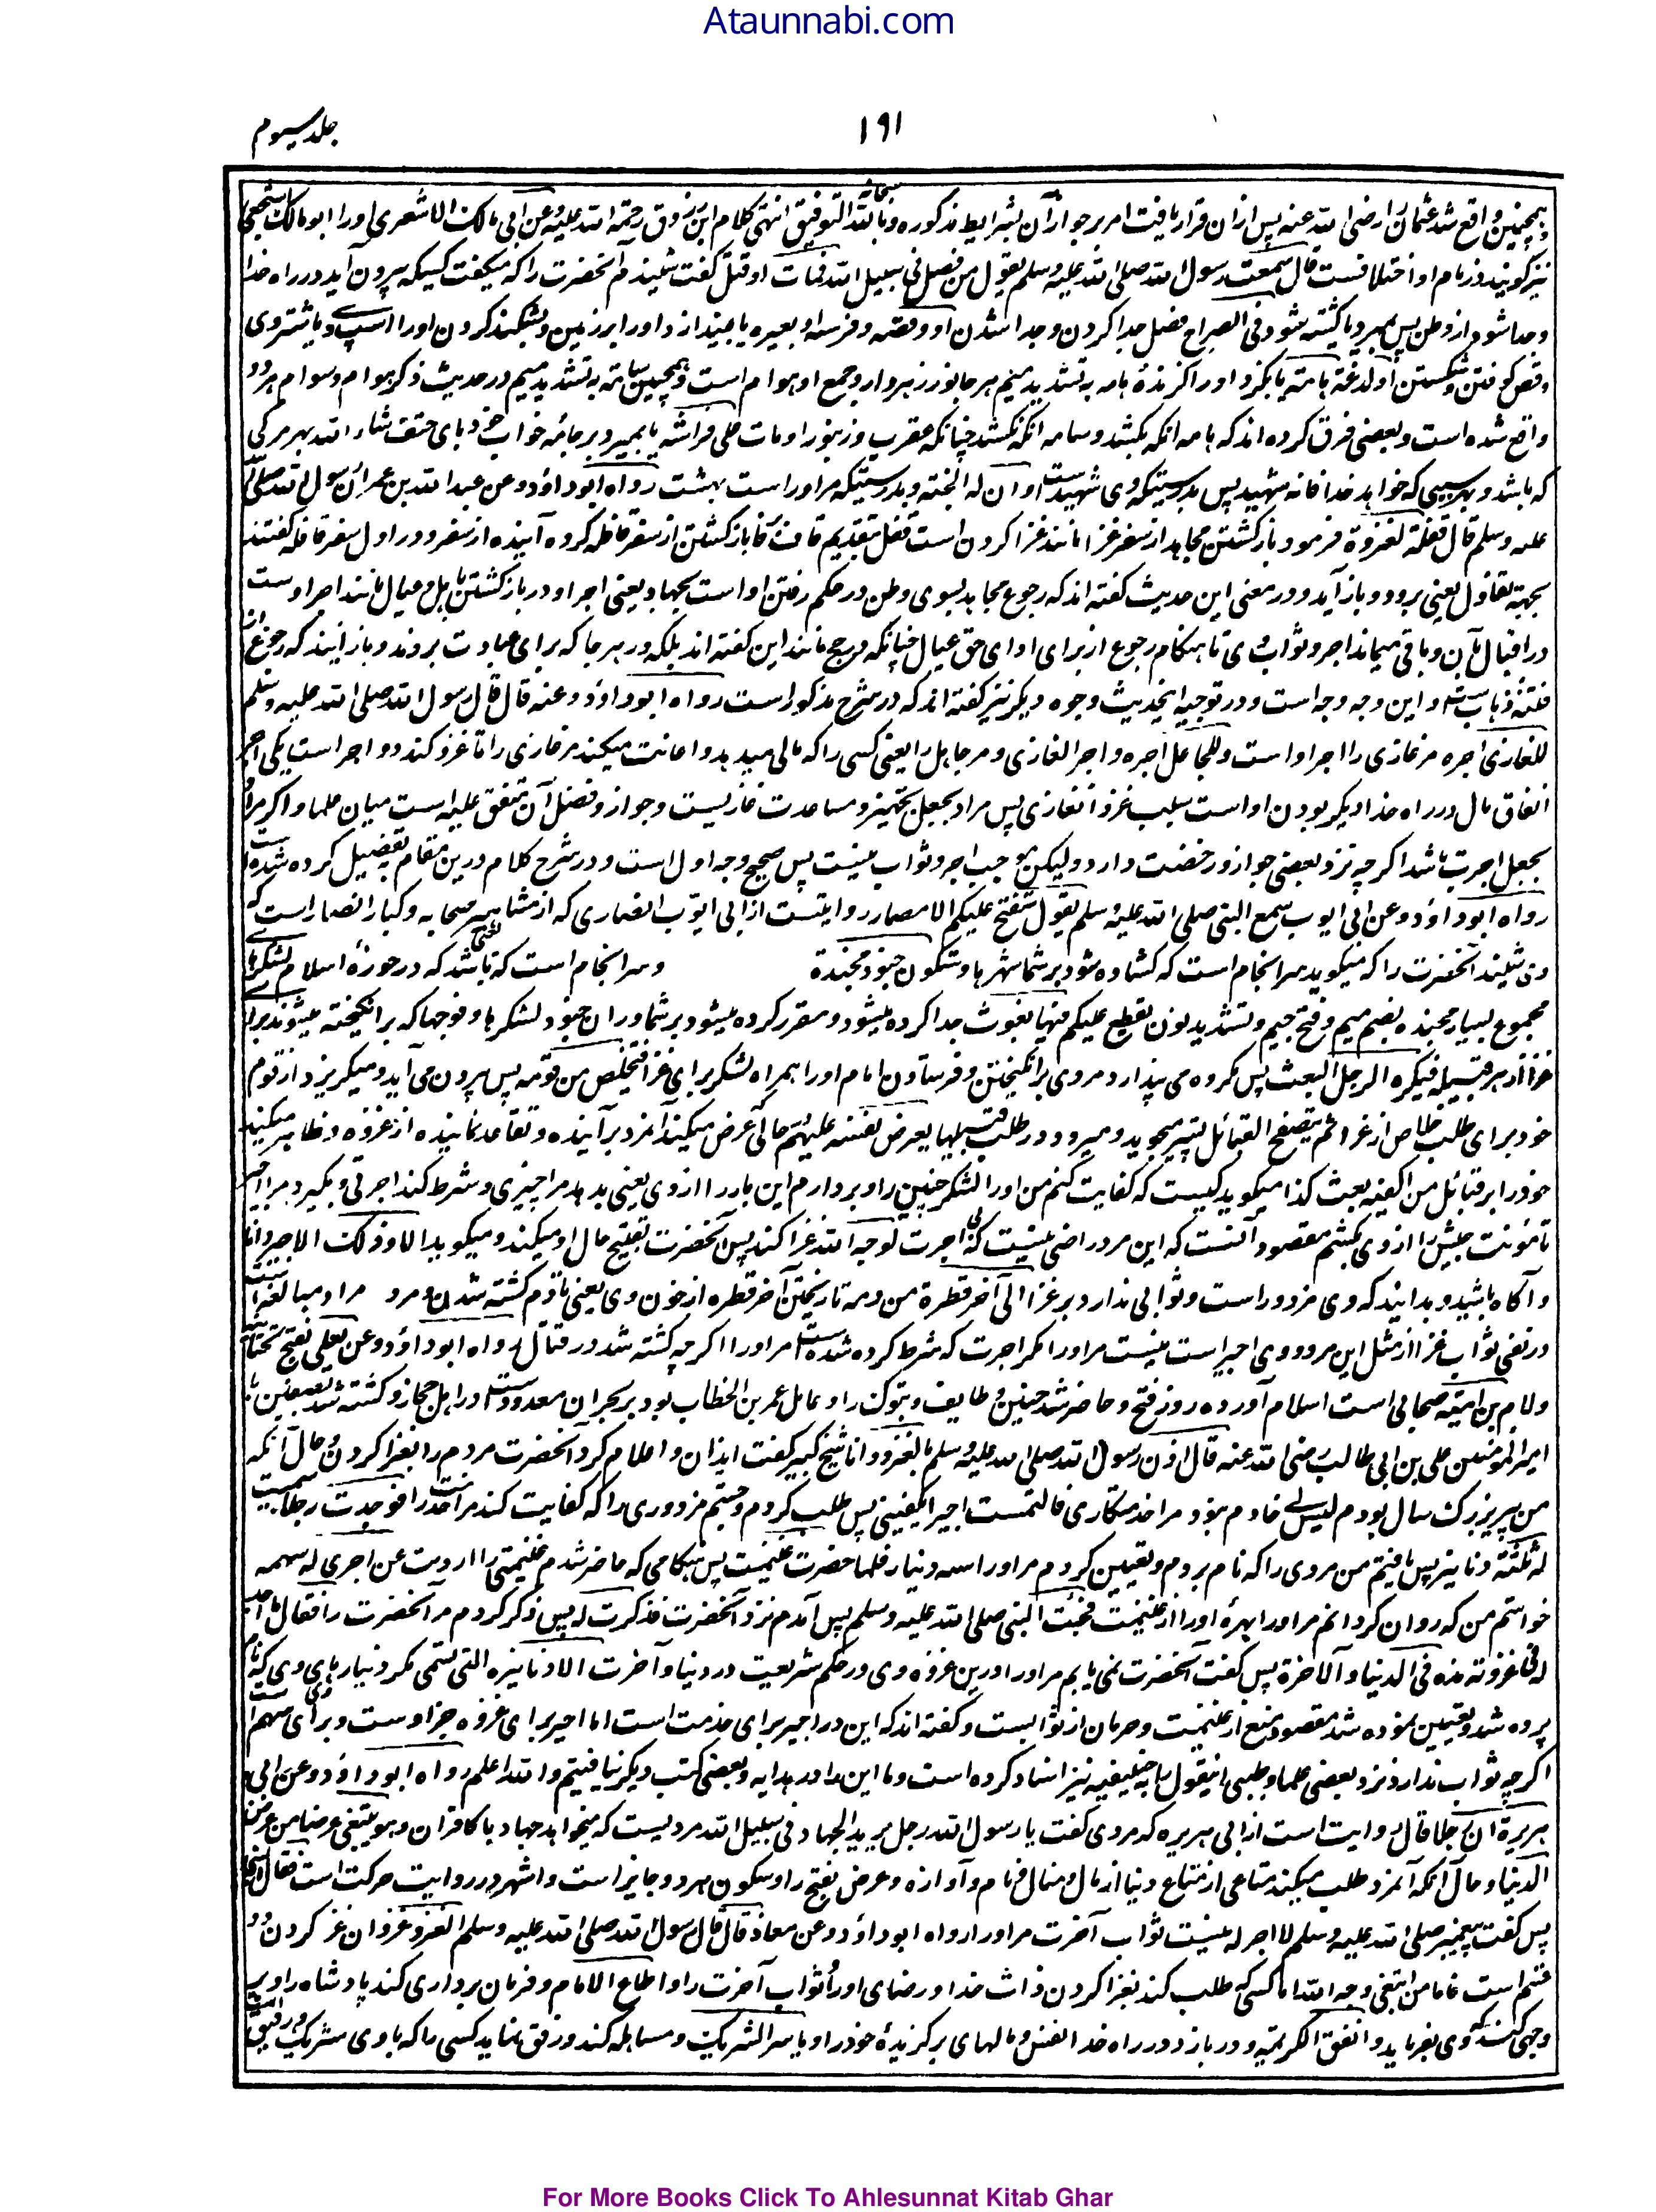 Ataunnabi.com
جلد سیوم
۱۹۱
ہمچنین واقع شد عثمان را رضی الله عنه پس ازان قرار یافت امر بر جواز آن بشرایط مذکوره و بالله سبحانه التوفیق انتهی کلام ابن زروق رحمة الله علیه وعن ابی مالک الاشعری اورا ابو مالک اشجعی
نیز گویند در نام او اختلافست قال سمعت رسول الله صلی الله علیه وسلم یقول من فصل فی سبیل الله فمات او قتل گفت شنیدم آنحضرت را که میگفت کسیکه بیرون آید در راه خدا
وجدا شود از وطن پس بمیرد یا کشته شود فی الصراح فصل جدا کردن وجدا شدن او وقصه فرسه او بعیره یا بیندازد اورا بر زمین وبشکند گردن اورا اسپ وی یا شتر وی
وقص کوفتن وشکستن او لدغته هامة یا بگزد اورا گزندهٔ هامه به تشدید میم هر جانور زهردار وجمع او هوام است وهمچنین سامه به تشدید میم در حدیث ذکر هوام وسوام هر دو
واقع شده است وبعضی فرق کرده اند که هامه آنکه بکشد وسامه آنکه نکشد چنانکه عقرب وزنبور او مات علی فراشه یا بمیرد بر جامه خواب خود بای حتف شاء الله بهر مرگی
که باشد وبهر سببی که خواهد خدا فانه شهید پس بدرستیکه وی شهیدست وان له الجنة وبدرستیکه مر اوراست بهشت رواه ابو داؤد وعن عبد الله بن عمر ان رسول الله صلی الله
علیه وسلم قال قفلة کغزوة فرمود باز گشتن مجاهد از سفر غزا مانند غزا کردن است قفل بتقدیم قاف بر فا باز گشتن از سفر قافله گروه آینده از سفر ودر اول سفر قافله گفتند
بجهة تفاؤل یعنی برود وباز آید ودر معنی این حدیث گفته اند که رجوع مجاهد بسوی وطن در حکم رفتن او است بجهاد یعنی اجر او در باز گشتن باهل وعیال مانند اجر اوست
در اقبال بآن وباقی میماند اجر وثواب وی تا هنگام رجوع از برای ادای حق عیال چنانکه در حج مانند این گفته اند بلکه در هر جا که برای عبادت بروند وباز آیند که رجوع از
فتنه ذهاب ست واین وجه وجه است ودر توجیه اینحدیث وجوه دیگر نیز گفته اند که در شرح مذکور است رواه ابو داؤد وعنه قال قال رسول الله صلی الله علیه وسلم
للغازی اجره مر غازی را اجر او است وللجاعل اجره واجر الغازی ومر جاعل را یعنی کسی را که مالی میدهد واعانت میکند مر غازی را تا غزو کند دو اجر است یکی اجر
انفاق مال در راه خدا دیگر بودن او است سبب غزو آن غازی پس مراد بجعل تجهیز ومساعدت غازیست وجواز وفضل آن متفق علیه است میان علما واگر مراد
بجعل اجرت باشد اگرچه نزد بعضی جواز ورخصت دارد ولیکن موجب اجر وثواب نیست پس صحیح وجه اول است ودر شرح کلام درین مقام بتفصیل کرده شده است
رواه ابو داؤد وعن ابی ایوب سمع النبی صلی الله علیه وسلم یقول ستفتح علیکم الامصار روایتست از ابی ایوب انصاری که از مشاهیر صحابه وکبار انصار است که
وی شنید آنحضرت را که میگوید سرانجام است که کشاده شود بر شما شهرها وستکون جنود مجندة وسرانجام است که باشد که در حوزهٔ اسلام لشکرهای
مجموع بسیار مجنده بضم میم وفتح جیم وتشدید نون یقطع علیکم فیها بعوث جدا کرده میشود ومقرر کرده میشود بر شما در ان جنود لشکرها وفوجها که برانگیخته میشوند برای
غزا از هر قبیله فیکره الرجل البعث پس مکروه می پندارد مردی برانگیختن وفرستادن امام اورا همراه لشکر برای غزا فیتخلص من قومه پس بیرون می آید ومیگریزد از قوم
خود برای طلب خلاص از غزا ثم یتصفح القبائل پستر میجوید ومیرود در طلب قبیلها یعرض نفسه علیهم حالی که عرض میکند آنمرد برآینده وتقاعد نماینده از غزوه وظاهر میکند
خود را بر قبائل من اکفیه بعث کذا میگوید کیست که کفایت کنم من اورا لشکر چنین را وبردارم این بار را ازوی یعنی بدهد مرا چیزی وشرط کند اجرتی وبگیرد مرا اجیر
تا مونت جیش را ازوی بکشم مقصود آنست که این مرد راضی نیست که بی اجرت لوجه الله غزا کند پس آنحضرت تقبیح حال او میکند ومیگوید الا وذلک الاجیر دانا
وآگاه باشید وبدانید که وی مزدور است وثوابی ندارد بر غزا الی آخر قطرة من دمه تا ریختن آخر قطره از خون وی یعنی تا دم کشته شدن ومرد مراد مبالغه است
در نفی ثواب غزا از مثل این مرد ووی اجیر است نیست مر اورا مگر اجرت که شرط کرده شده است مر اورا اگرچه کشته شد در قتال رواه ابو داؤد وعن یعلی بفتح تحتانیه
ولام بن امیة صحابی است اسلام آورده روز فتح وحاضر شد حنین وطایف وتبوک را وعامل عمر بن الخطاب بود بر نجران معدودست در اهل حجاز وکشته شد بصفین با
امیر المؤمنین علی بن ابی طالب رضی الله عنه قال اذن رسول الله صلی الله علیه وسلم بالغزو وانا شیخ کبیر گفت ایذان واعلام کرد آنحضرت مردم را بغزا کردن وحال آنکه
من پیر بزرگ سال بودم لیس لی خادم نبود مرا خدمتگاری فالتمست اجیرا یکفینی پس طلب کردم وجستم مزدوری را که کفایت کند مرا خدمت را فوجدت رجلا سمیت
له ثلثة دنانیر پس یافتم من مردی را که نام بردم وتعیین کردم مر اورا سه دینار فلما حضرت غنیمت پس هنگامی که حاضر شدم غنیمتی را اردت عن اجری له سهمه
خواستم من که روان گردانم مر اورا بهرهٔ اورا از غنیمت فجئت النبی صلی الله علیه وسلم پس آمدم نزد آنحضرت فذکرت له پس ذکر کردم مر آنحضرت را فقال ما اجد
له فی غزوته هذه فی الدنیا والآخرة پس گفت آنحضرت نمی یابم مر اورا درین غزوه وی در حکم شریعت در دنیا وآخرت الا دنانیره التی تسمی مگر دینارهای وی که نام
برده شد وتعیین نموده شد مقصود منع از غنیمت وحرمان از ثوابست وگفته اند که این در اجیر برای خدمت است اما اجیر برای غزوه جز اوست وبرای وی سهم است
اگرچه ثواب ندارد نزد بعضی علما وطیبی این قول را به حنیفیه نیز اسناد کرده است وما این را در هدایه وبعضی کتب دیگر نیافتیم والله اعلم رواه ابو داؤد وعن ابی
هریرة ان رجلا قال روایت است از ابی هریره که مردی گفت یا رسول الله رجل یرید الجهاد فی سبیل الله مردیست که میخواهد جهاد با کافران وهو یبتغی عرضا من عرض
الدنیا وحال آنکه آنمرد طلب میکند متاعی از متاع دنیا از مال ومنال ونام وآوازه وعرض بفتح را وسکون هر دو جایز است واشهر در روایت حرکت است فقال النبی
پس گفت پیغمبر صلی الله علیه وسلم لا اجر له نیست ثواب آخرت مر اورا رواه ابو داؤد وعن معاذ قال قال رسول الله صلی الله علیه وسلم الغزو غزوان غزا کردن دو
قسم است فاما من ابتغی وجه الله اما کسی که طلب کند بغزا کردن ذات خدا ورضای اورا وثواب آخرت را واطاع الامام وفرمان برداری کند پادشاه را وبر
وجهی کند که وی بفرماید وانفق الکریمة ودر بازد در راه خدا نفس ومالهای برگزیدهٔ خود را ویاسر الشریک ومساهله کند ورفق نماید کسی را که با وی شریک ورفیق است
For More Books Click To Ahlesunnat Kitab Ghar